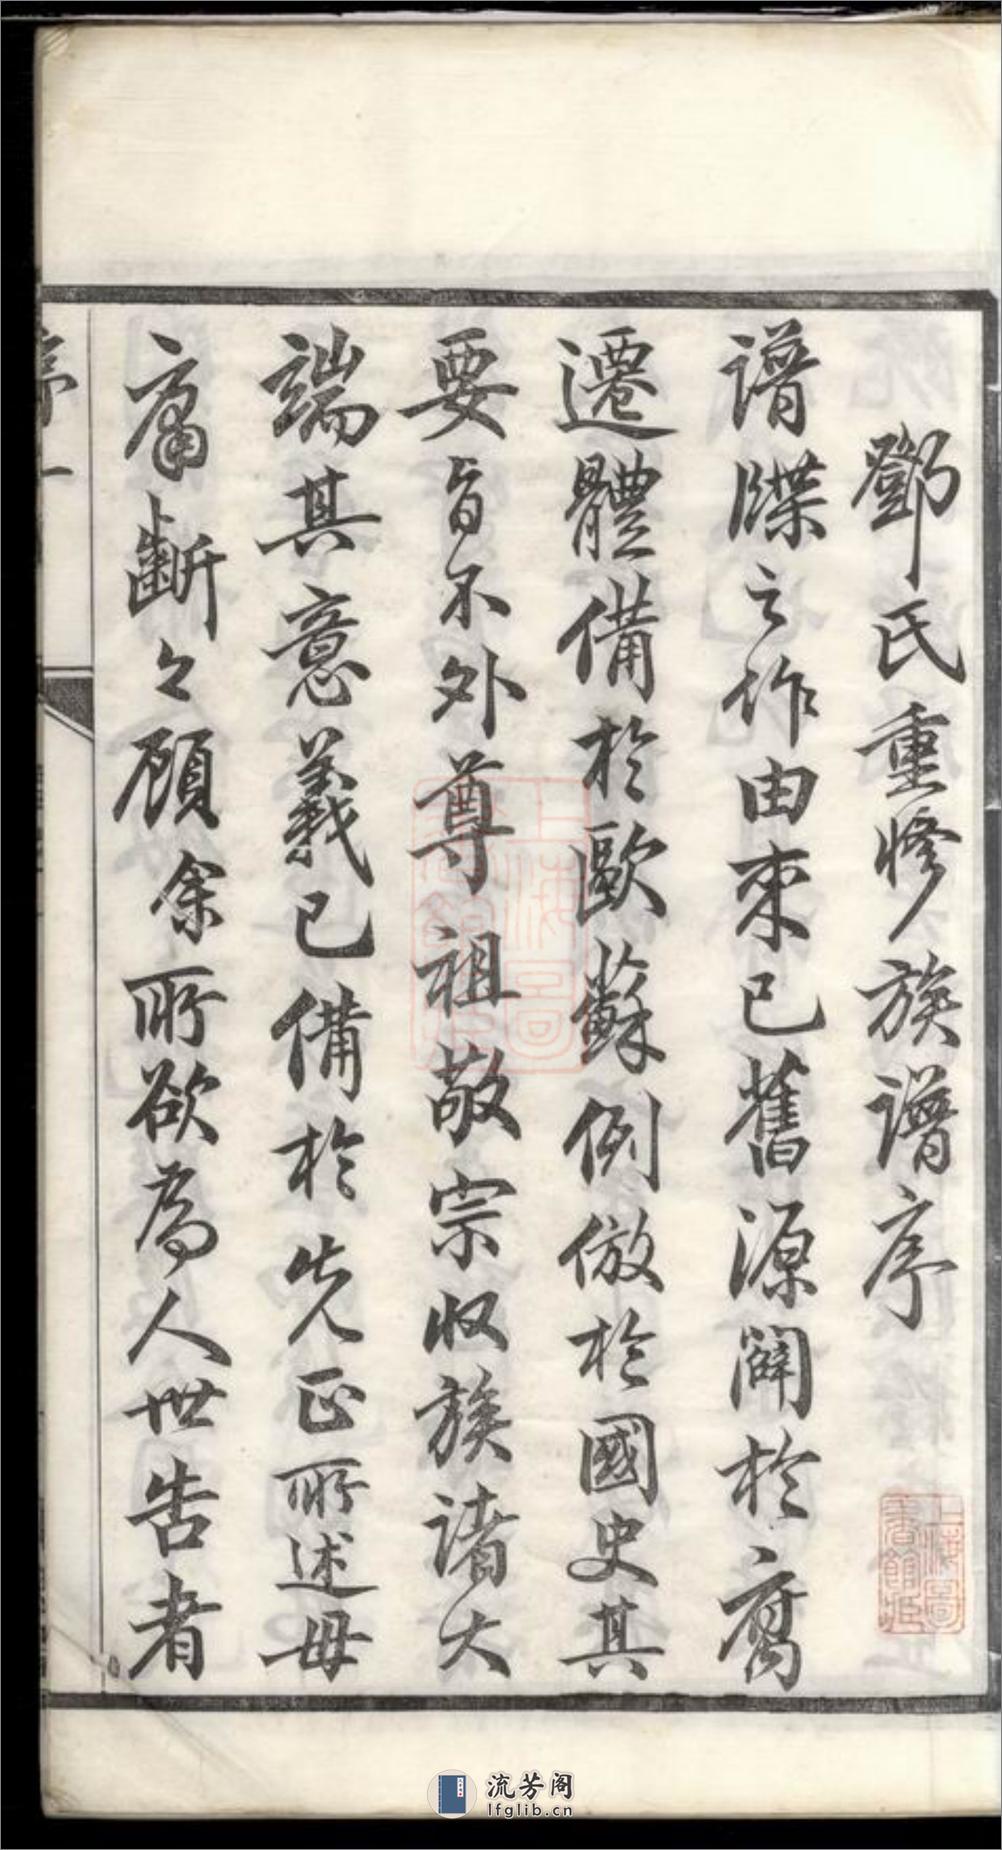 鄧氏重修族譜序
譜牒之作由來已舊源闢於腐
遷體備於歐蘇例倣於國史其
要旨不外尊祖敬宗收族諸大
端其意義已備於先正所述毋
庸齗々顧余所欲為人世告者
序一
上海圖書館藏
上海圖書館藏
流芳阁
lfglib.cn